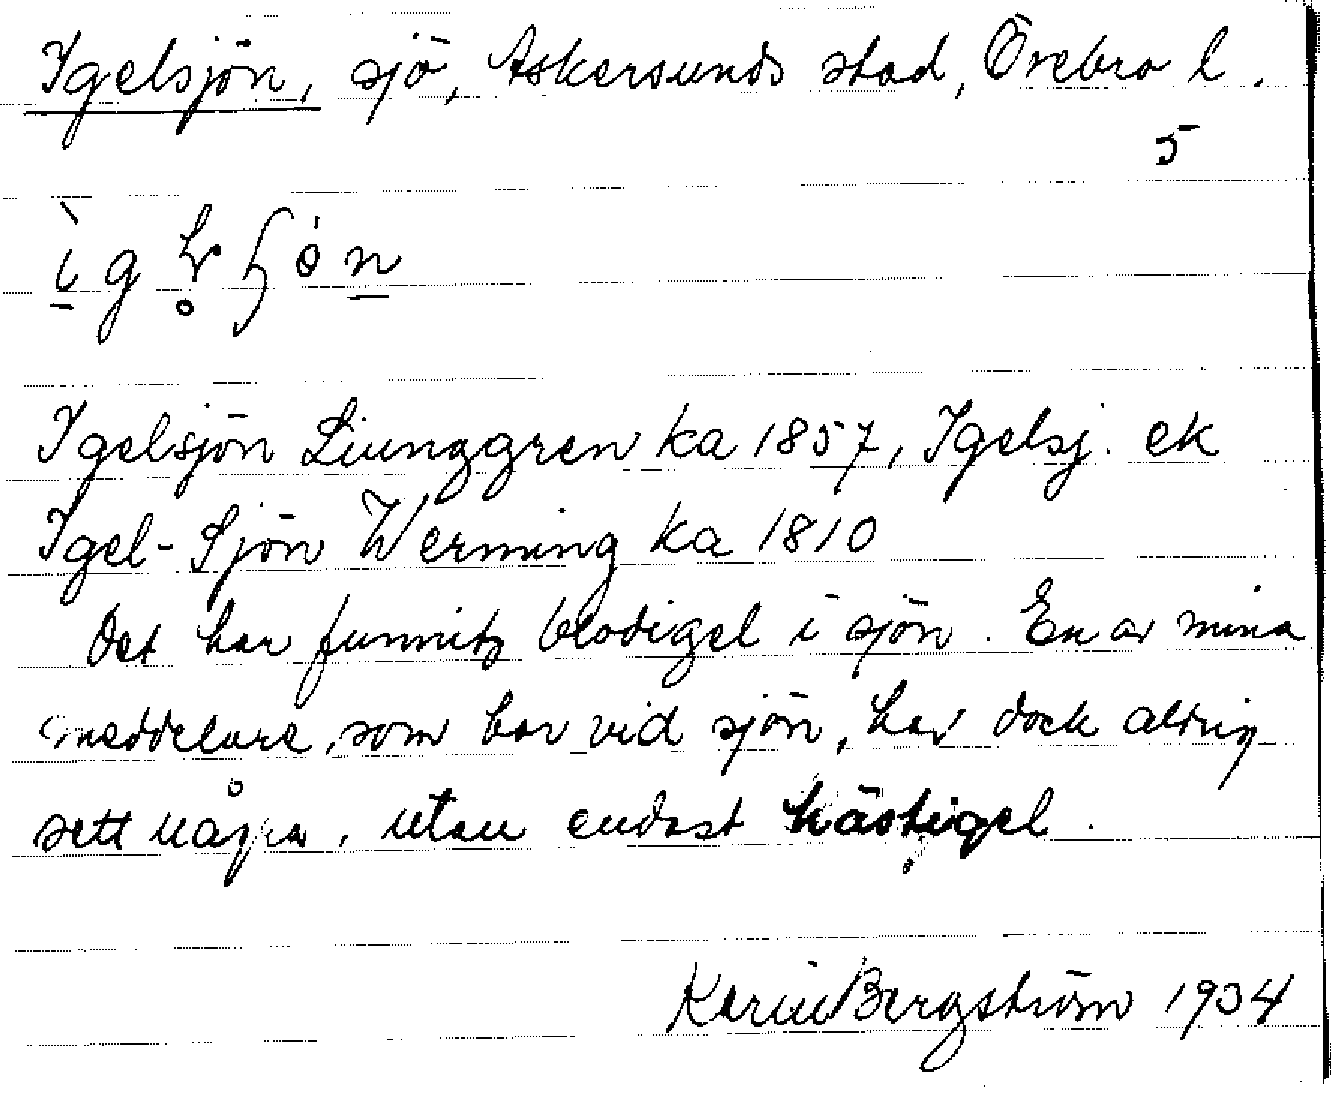 Igelsjön, sjö, Askersunds stad, Örebro l.
5
Igelsjön Liunggren ka 1857, Igelsj. ek
Igel-Sjön Werming ka 1810
Det har funnits blodigel i sjön. En av mina
meddelare, som bor vid sjön, har dock aldrig
sett några, utan endast hästigel.
Karin Bergström 1934